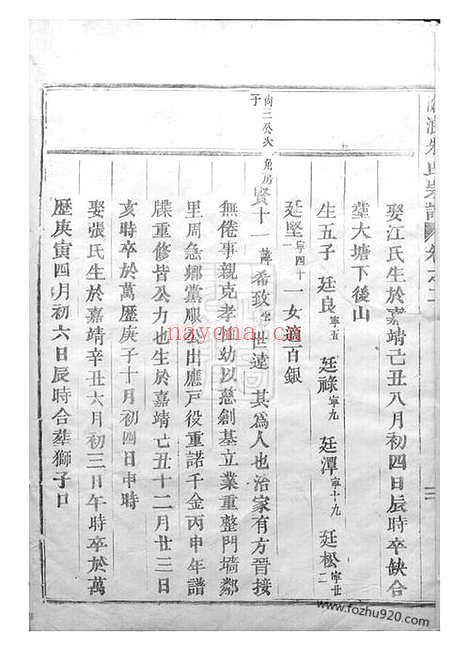 朱氏宗譜 卷之二
娶江氏生於嘉靖己丑八月初四日辰時卒缺合
塟大塘下後山
生五子 廷良寧五 廷祿寧九 廷潭寧十九 廷松寧廿二
廷堅寧四十一 一女適百銀
向三公次子 角房 賢十一 諱希玫字世遠 其為人也治家有方晉接
無倦事親克孝恤幼以慈創基立業重整門墻鄰
里周急鄉黨服公出應戶役重諾千金丙申年譜
牒重修皆公力也生於嘉靖己丑十二月廿三日
亥時卒於萬歷庚子十月初四日申時
娶張氏生於嘉靖辛丑六月初三日午時卒於萬
歷庚寅四月初六日辰時合塟獅子口
nayona.cn
www.fozhu920.com